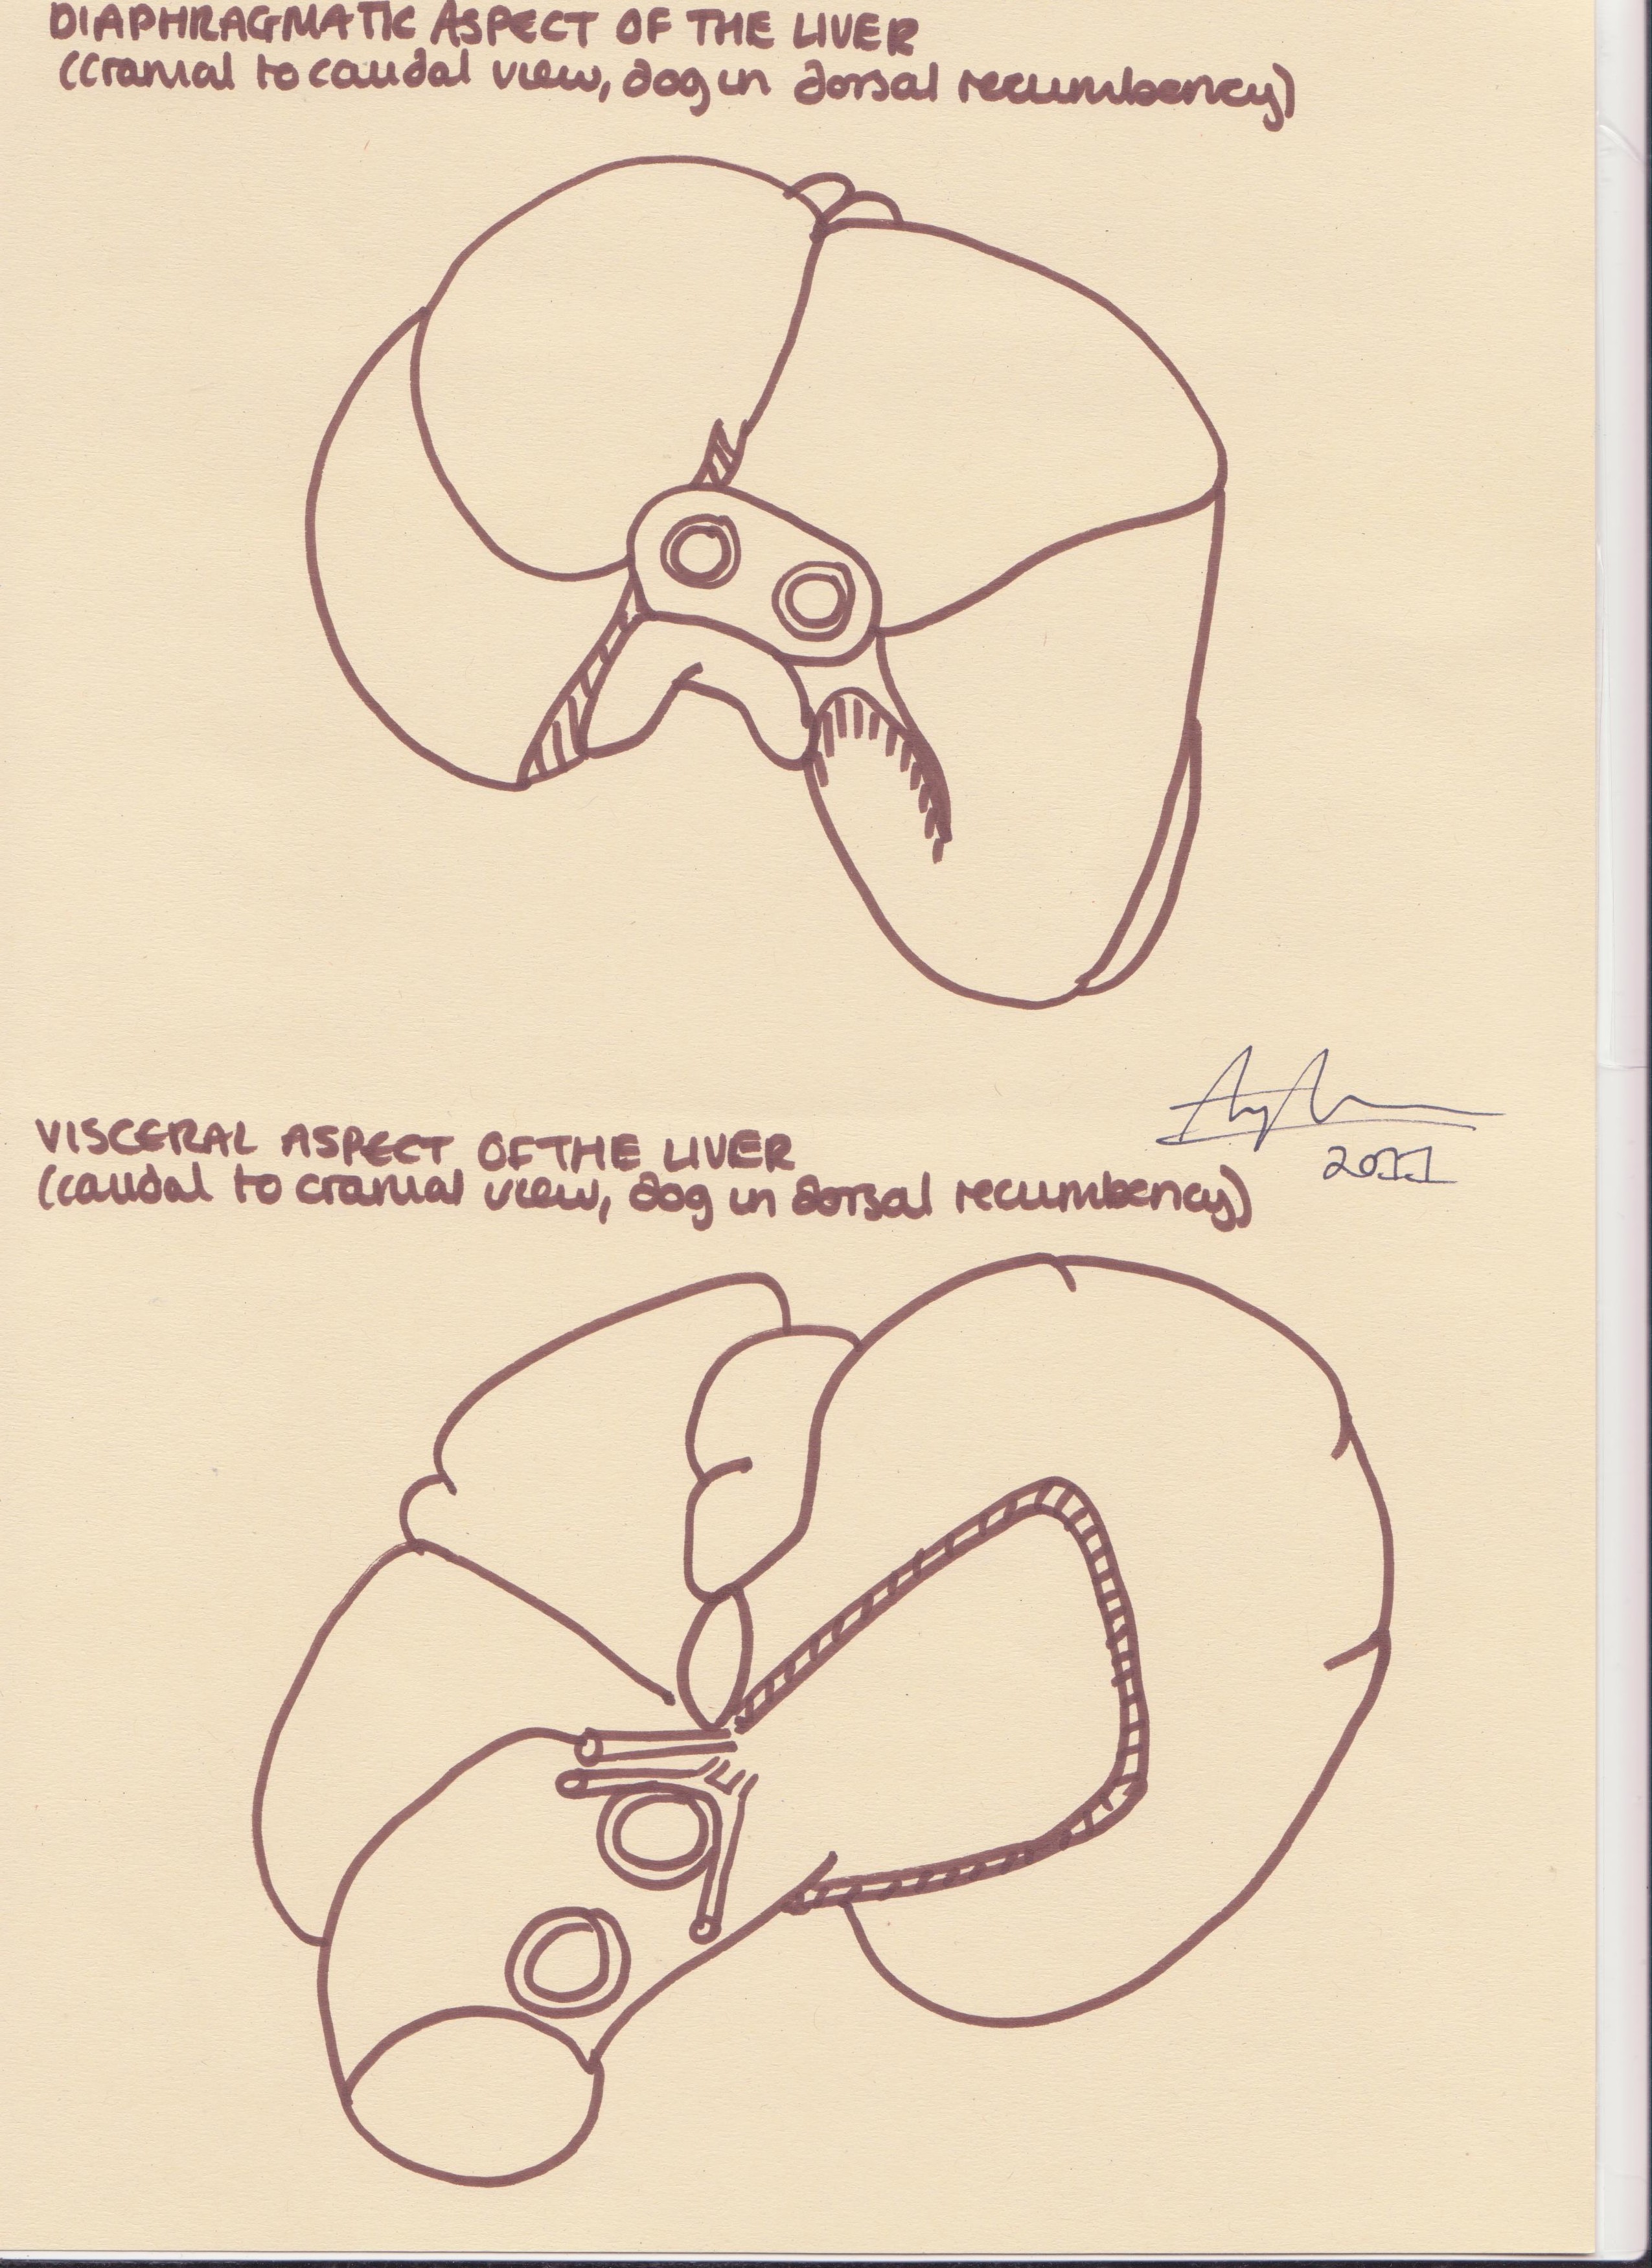 DIAPHRAGMATIC ASPECT OF THE LIVER
(cranial to caudal view, dog in dorsal recumbency)
2011
VISCERAL ASPECT OF THE LIVER
(caudal to cranial view, dog in dorsal recumbency)